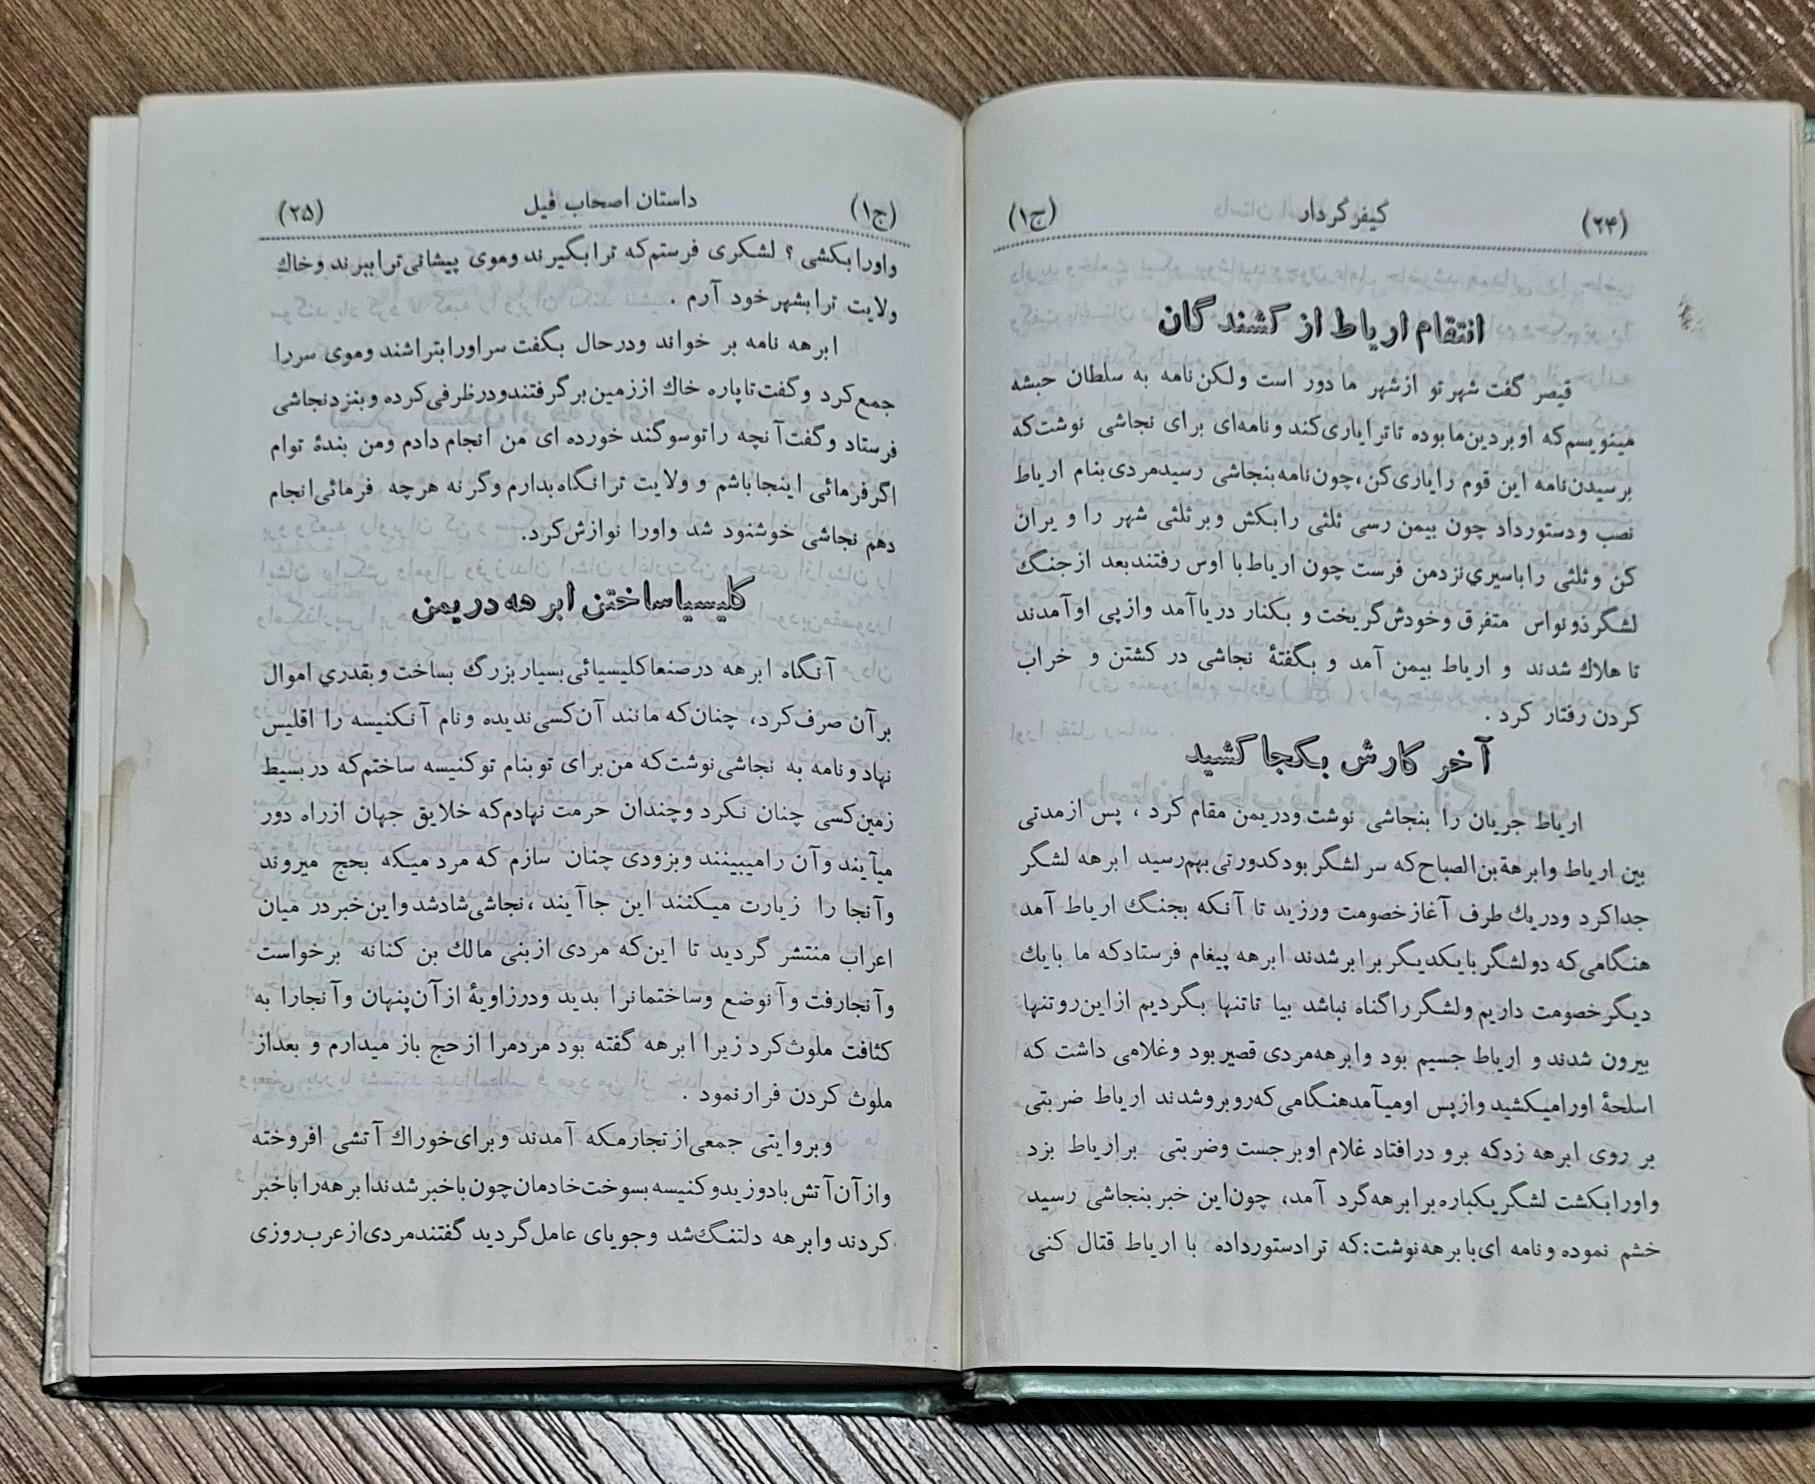 (۲۴) کیفر کردار (ج۱)
انتقام اریاط از کشندگان
قیصر گفت شهر تو از شهر ما دور است ولکن نامه به سلطان حبشه
مینویسم که او بر دین ما بوده تا ترا یاری کند و نامه‌ای برای نجاشی نوشت که
برسیدن نامه این قوم را یاری کن، چون نامه بنجاشی رسید مردی بنام اریاط
نصب و دستور داد چون بیمن رسی ثلثی را بکش و بر ثلثی شهر را ویران
کن و ثلثی را باسیری نزد من فرست چون اریاط با اوس رفتند بعد از جنگ
لشگر ذونواس متفرق و خودش گریخت و بکنار دریا آمد و از پی او آمدند
تا هلاك شدند و اریاط بیمن آمد و بگفتهٔ نجاشی در کشتن و خراب
کردن رفتار کرد .
آخر کارش بکجا کشید
اریاط جریان را بنجاشی نوشت و در یمن مقام کرد ، پس از مدتی
بین اریاط و ابرهة بن الصباح که سر لشگر بود کدورتی بهم رسید ابرهه لشگر
جدا کرد و در یك طرف آغاز خصومت ورزید تا آنکه بجنگ اریاط آمد
هنگامی که دو لشگر با یکدیگر برابر شدند ابرهه پیغام فرستاد که ما با یك
دیگر خصومت داریم و لشگر را گناه نباشد بیا تا تنها بگردیم از این رو تنها
بیرون شدند و اریاط جسیم بود و ابرهه مردی قصیر بود و غلامی داشت که
اسلحهٔ او را میکشید و از پس او میآمد هنگامی که روبرو شدند اریاط ضربتی
بر روی ابرهه زد که برو در افتاد غلام او بر جست و ضربتی بر اریاط بزد
و او را بکشت لشگر یکباره بر ابرهه گرد آمد، چون این خبر بنجاشی رسید
خشم نموده و نامه ای با برهه نوشت: که ترا دستور داده با اریاط قتال کنی
(ج۱) داستان اصحاب فیل (۲۵)
و او را بکشی ؟ لشکری فرستم که ترا بگیرند و موی پیشانی ترا ببرند و خاك
ولایت ترا بشهر خود آرم .
ابرهه نامه بر خواند و در حال بگفت سر او را بتراشند و موی سر را
جمع کرد و گفت تا پاره خاك از زمین بر گرفتند و در ظرفی کرده و بنزد نجاشی
فرستاد و گفت آنچه را تو سوگند خورده ای من انجام دادم و من بندهٔ توام
اگر فرمائی اینجا باشم و ولایت ترا نگاه بدارم و گر نه هر چه فرمائی انجام
دهم نجاشی خوشنود شد و او را نوازش کرد.
کلیسیا ساختن ابرهه در یمن
آنگاه ابرهه در صنعا کلیسیائی بسیار بزرگ بساخت و بقدري اموال
بر آن صرف کرد، چنان که مانند آن کسی ندیده و نام آنکنیسه را اقلیس
نهاد و نامه به نجاشی نوشت که من برای تو بنام تو کنیسه ساختم که در بسیط
زمین کسی چنان نکرد و چندان حرمت نهادم که خلایق جهان از راه دور
میآیند و آن را میبینند و بزودی چنان سازم که مردمیکه بحج میروند
و آنجا را زیارت میکنند این جا آیند ، نجاشی شاد شد و این خبر در میان
اعراب منتشر گردید تا این که مردی از بنی مالك بن کنانه برخواست
و آنجا رفت و آنوضع و ساختمانرا بدید و در زاویهٔ از آن پنهان و آنجا را به
کثافت ملوث کرد زیرا ابرهه گفته بود مردم را از حج باز میدارم و بعد از
ملوث کردن فرار نمود .
و بروایتی جمعی از تجار مکه آمدند و برای خوراك آتشی افروخته
و از آن آتش باد وزید و کنیسه بسوخت خادمان چون با خبر شدند ابرهه را با خبر
کردند و ابرهه دلتنگ شد و جویای عامل گردید گفتند مردی از عرب روزی